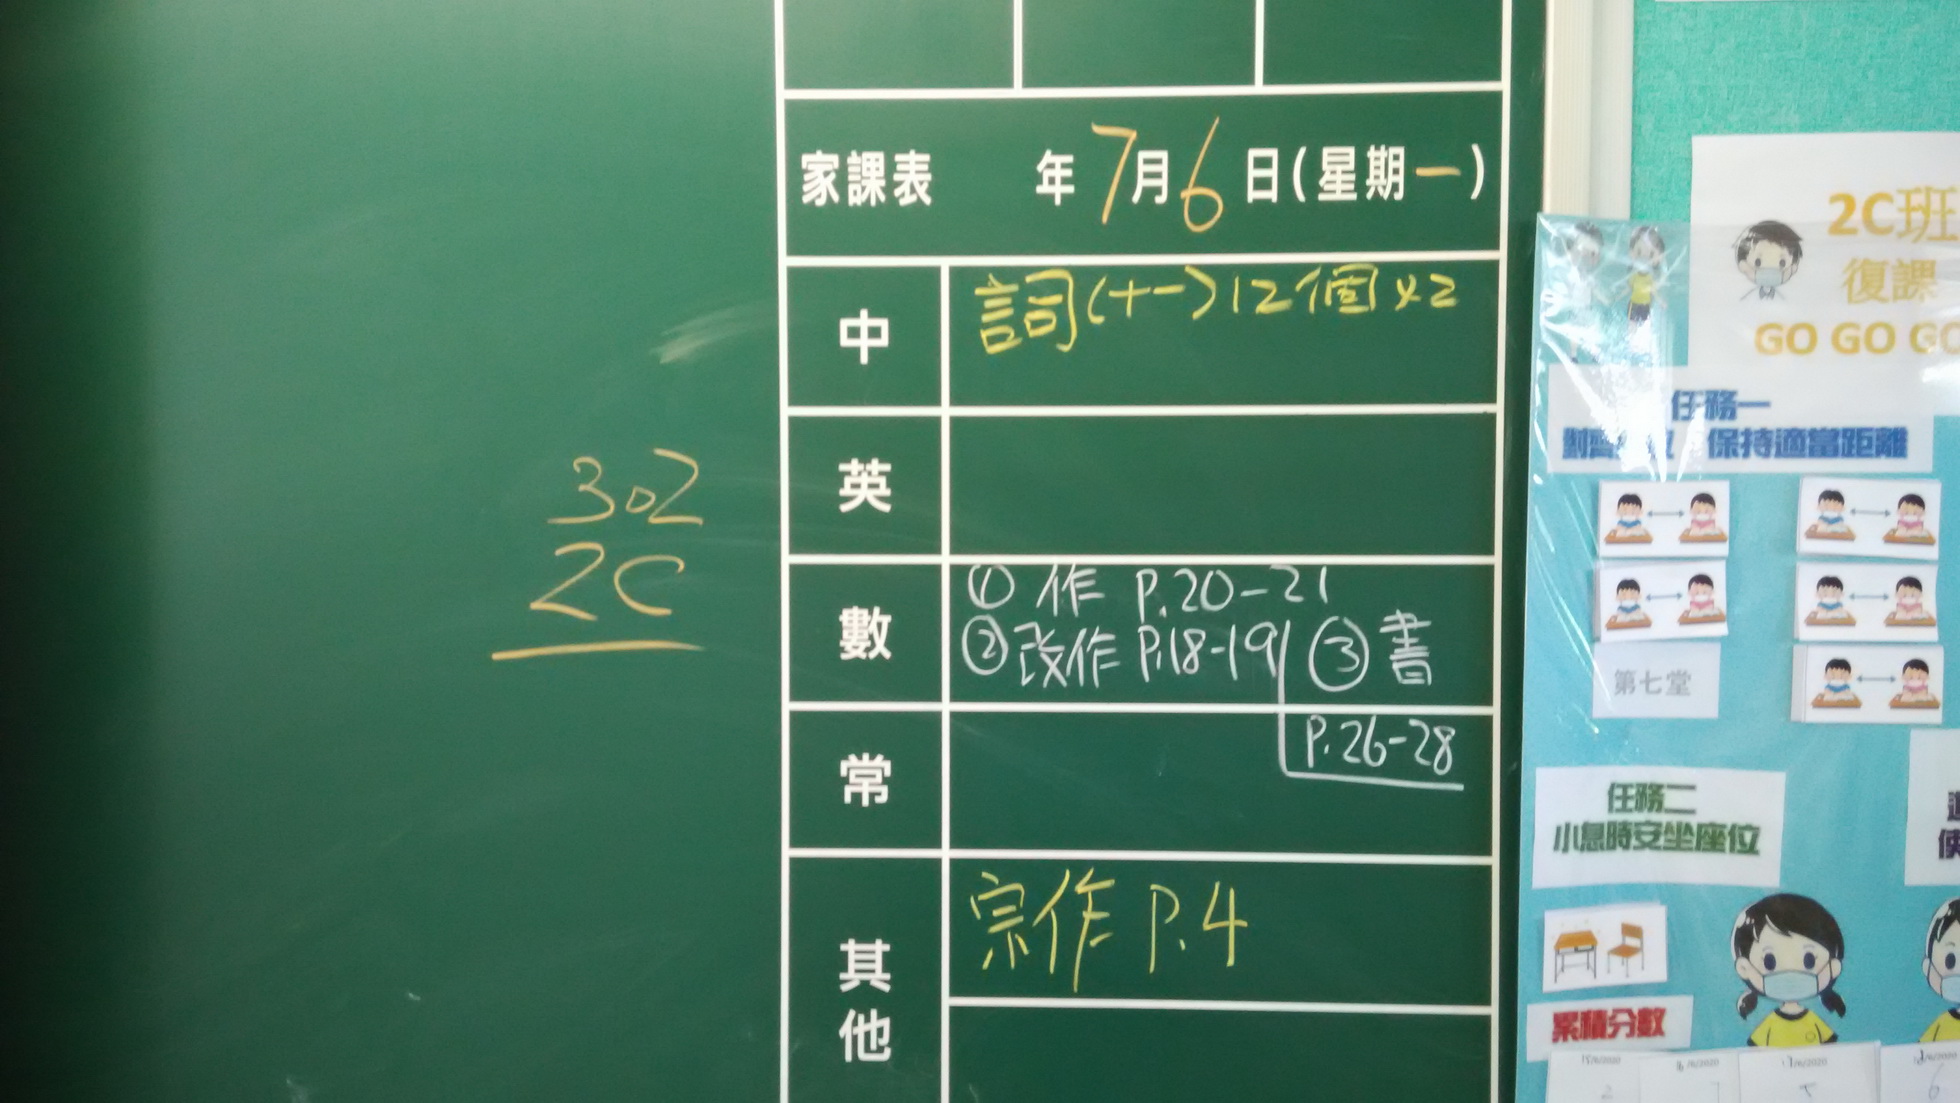 家課表 年7月6日(星期一)
中 詞(十一)12個x2
英
數 ① 作 P.20-21
② 改作 P.18-19 ③ 書
P.26-28
常
其他 宗作 P.4
302
2C
2C班
復課
GO GO GO
任務一
保持適當距離
第七堂
任務二
小息時安坐座位
累積分數